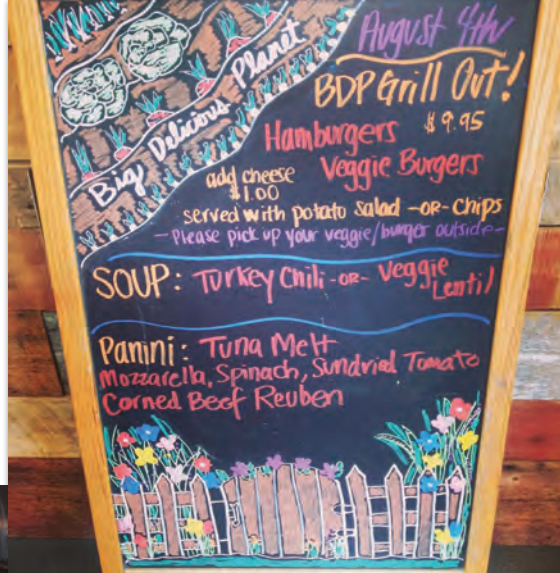 Big Delicious Planet
August 4th
BDP Grill Out!
$9.95
Hamburgers
Veggie Burgers
add cheese
$1.00
served with potato salad -OR- Chips
- Please pick up your veggie/burger outside -
SOUP: Turkey Chili -OR- Veggie
Lentil
Panini: Tuna Melt
Mozzarella, Spinach, Sundried Tomato
Corned Beef Reuben